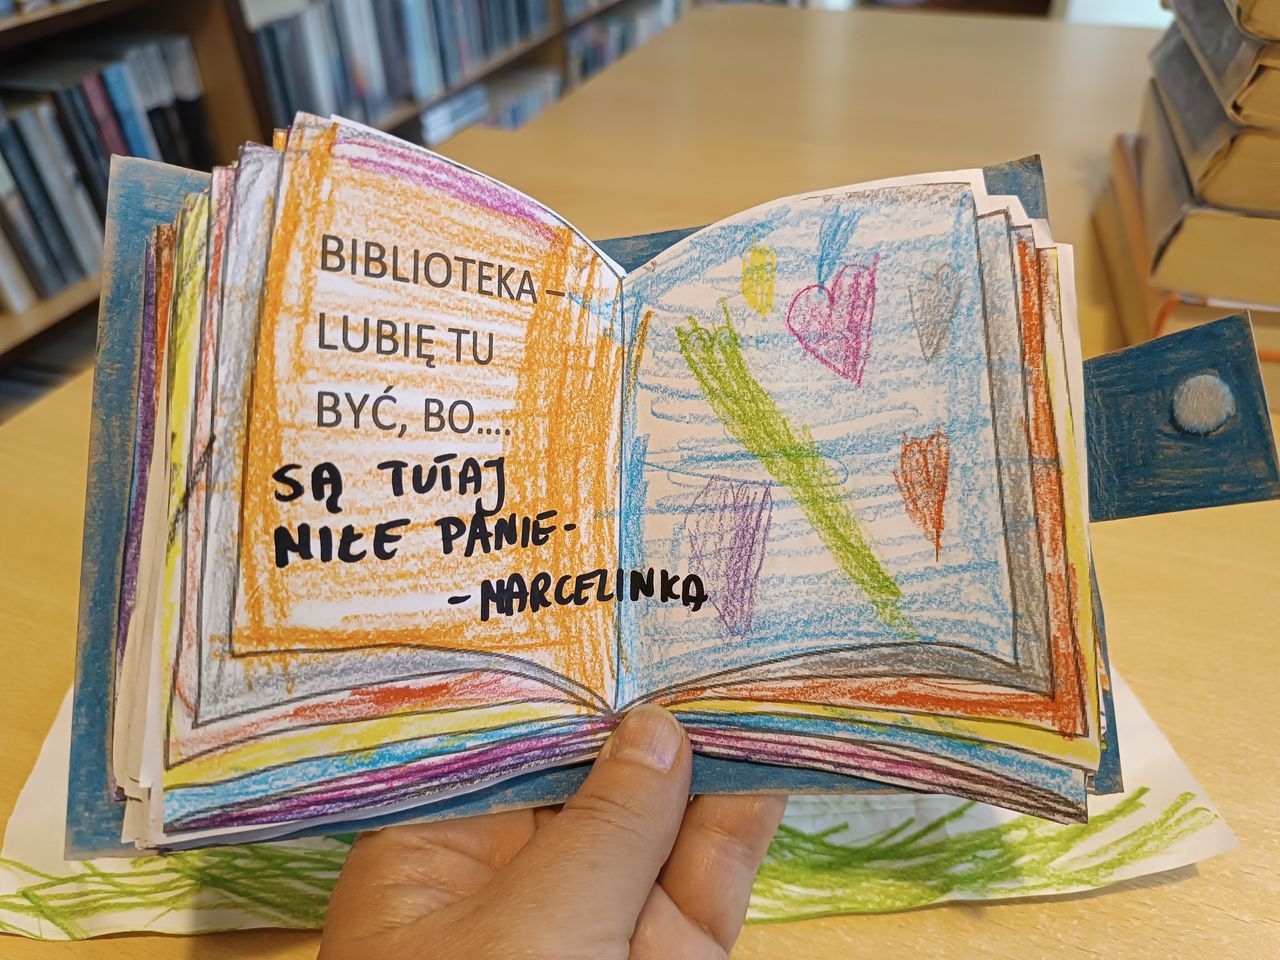 BIBLIOTEKA –
LUBIĘ TU
BYĆ, BO....
SĄ TUTAJ
MIŁE PANIE-
- MARCELINKA